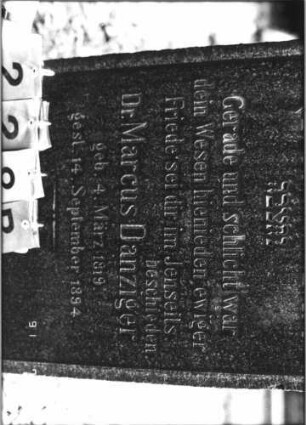 Gerade und schlicht war
dein Wesen hienieden ewiger
Friede sei dir im Jenseits
beschieden
Dr. Marcus Danziger
geb. 4. März 1819
gest. 14. September 1894
91